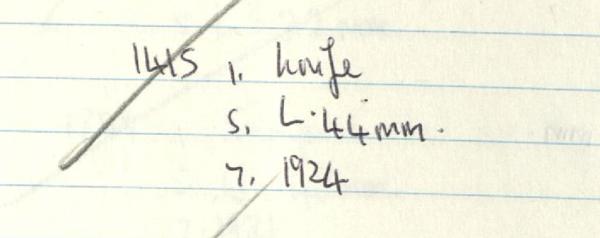 1415 1. knife
5. L. 44mm.
7. 1924